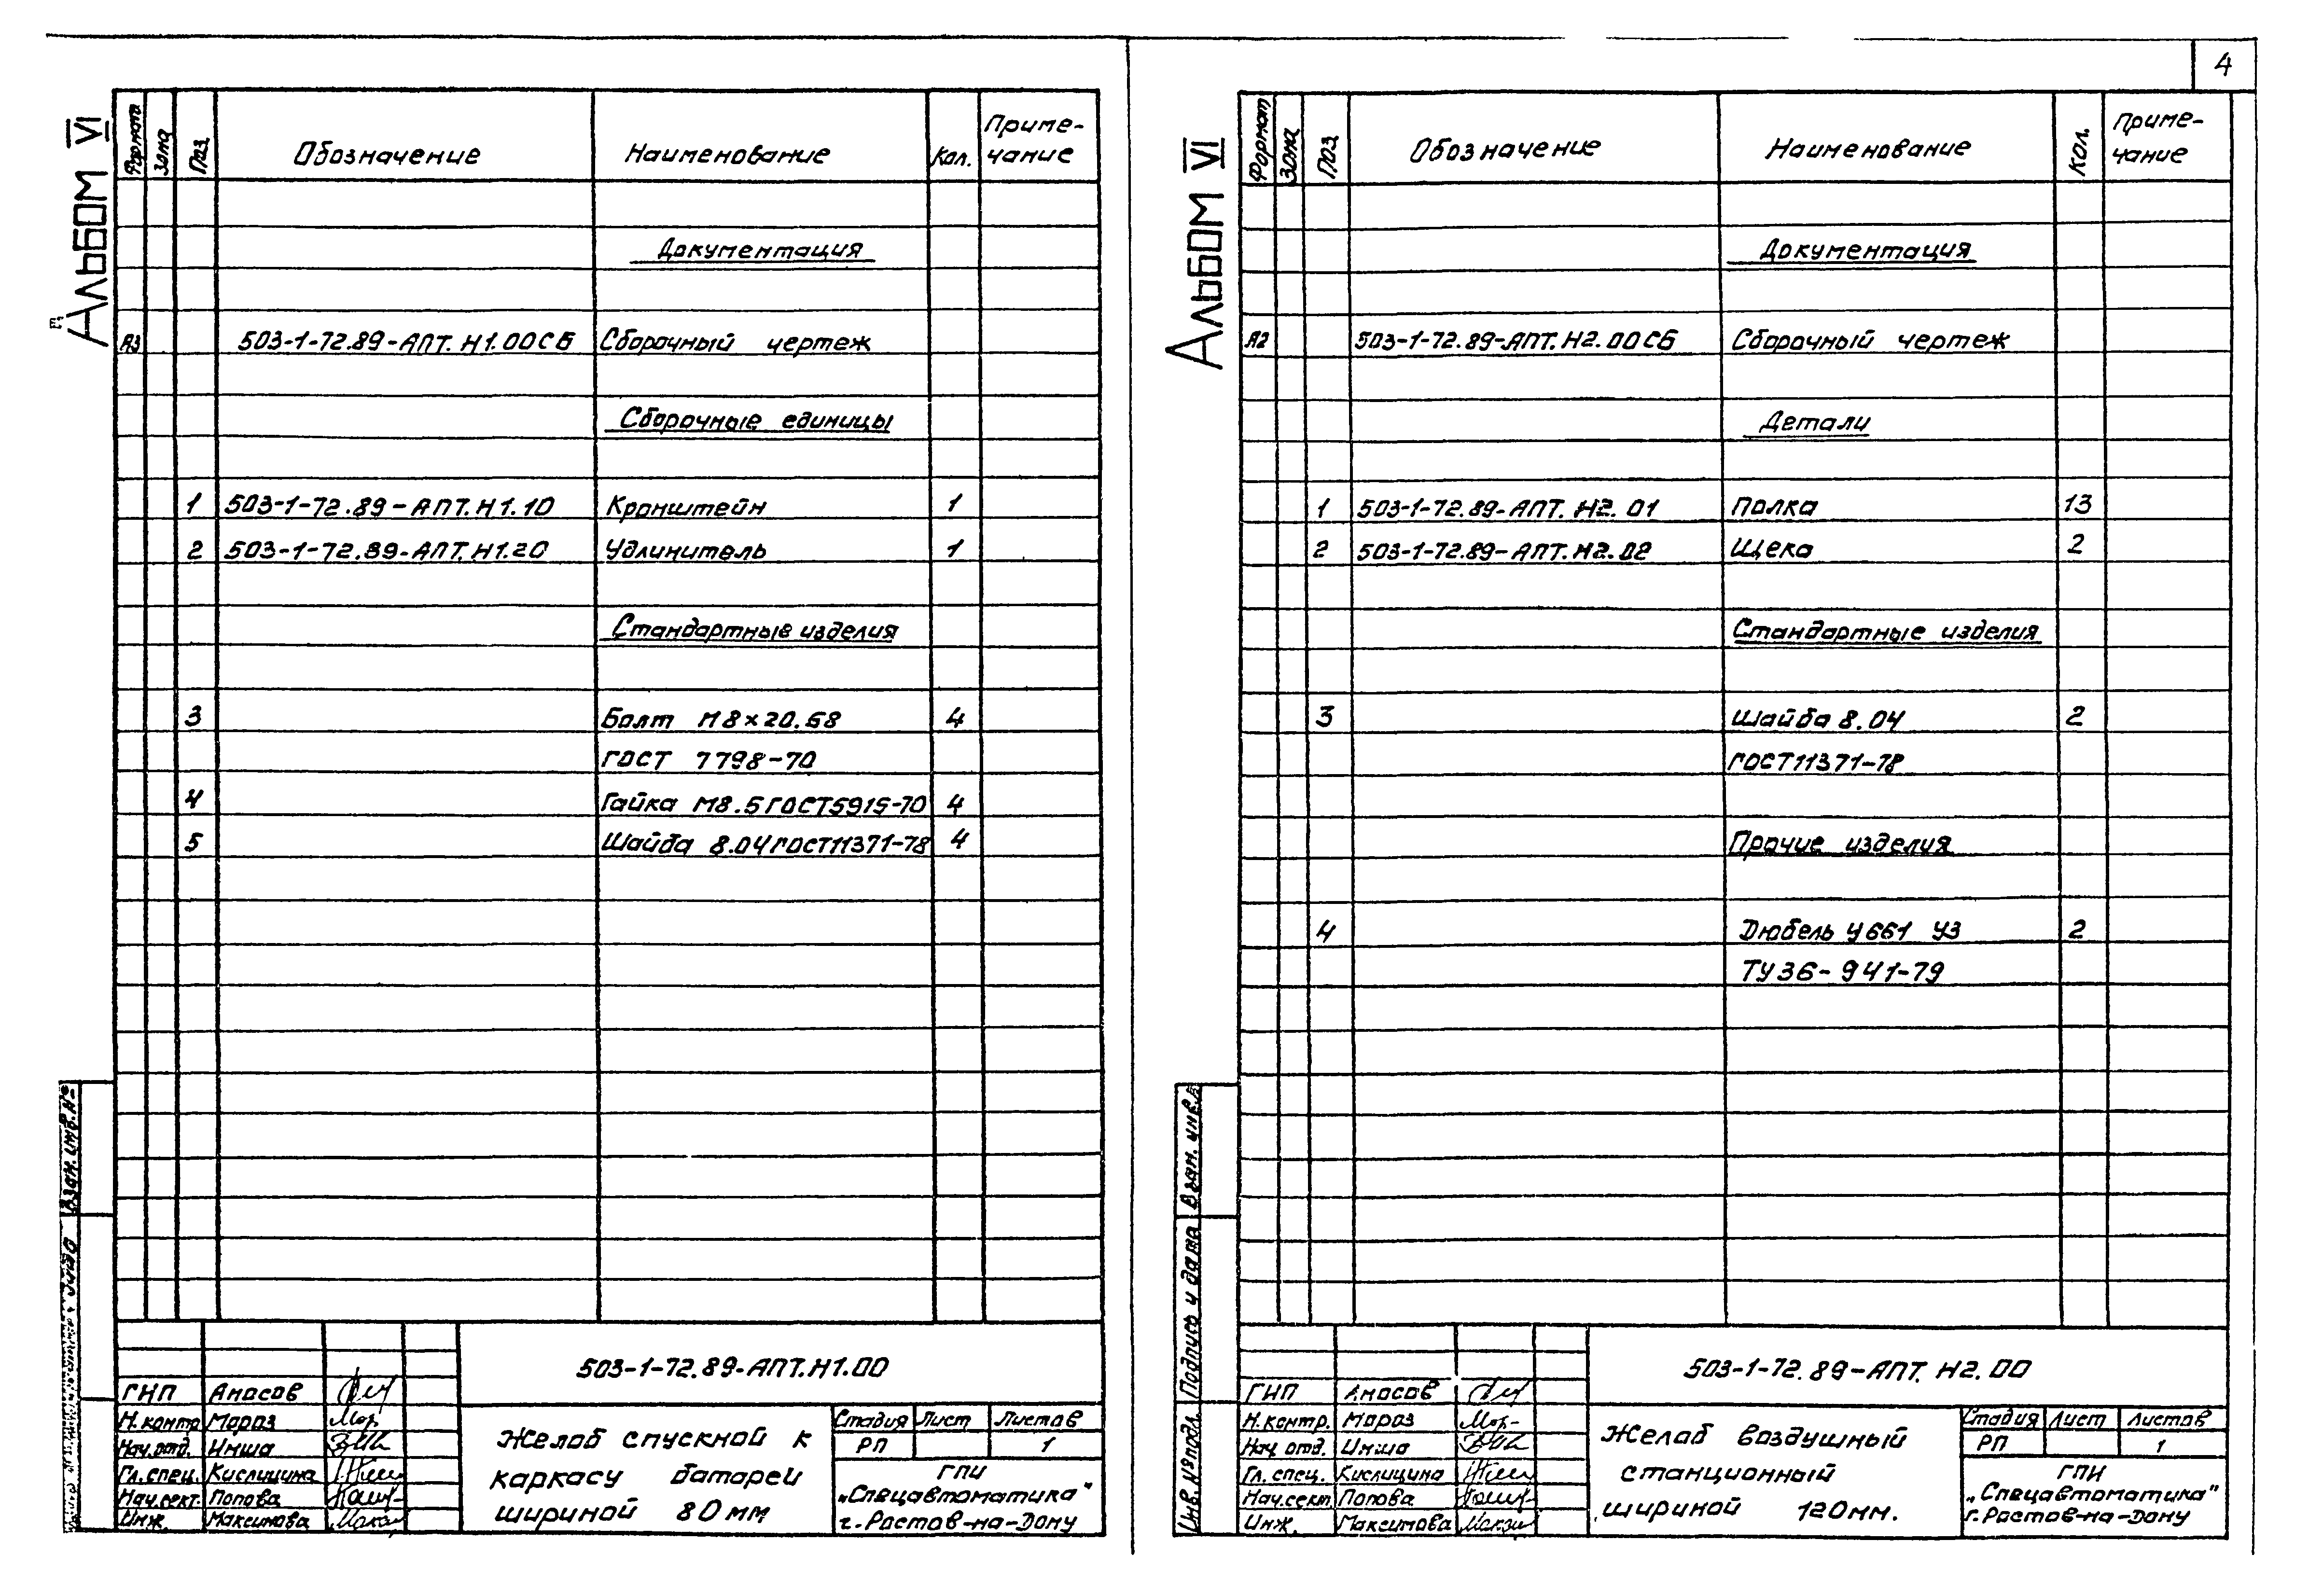 4
Альбом VI
Формат Зона Поз. Обозначение Наименование Кол. Приме-
чание
Документация
А3 503-1-72.89-АПТ.Н1.00СБ Сборочный чертеж
Сборочные единицы
1 503-1-72.89-АПТ.Н1.10 Кронштейн 1
2 503-1-72.89-АПТ.Н1.20 Удлинитель 1
Стандартные изделия
3 Болт М8×20.58 4
ГОСТ 7798-70
4 Гайка М8.5 ГОСТ5915-70 4
5 Шайба 8.04 ГОСТ11371-78 4
Взам. инв. №
503-1-72.89-АПТ.Н1.00
ГИП Аносов
Н.контр Мороз
Нач.отд. Инша
Гл.спец. Кислицина
Нач.сект. Попова
Инж. Максимова
Желоб спускной к
каркасу батарей
шириной 80мм
Стадия Лист Листов
РП 1
ГПИ
„Спецавтоматика"
г.Ростов-на-Дону
Альбом VI
Формат Зона Поз. Обозначение Наименование Кол. Приме-
чание
Документация
А2 503-1-72.89-АПТ.Н2.00СБ Сборочный чертеж
Детали
1 503-1-72.89-АПТ.Н2.01 Полка 13
2 503-1-72.89-АПТ.Н2.02 Щека 2
Стандартные изделия
3 Шайба 8.04 2
ГОСТ11371-78
Прочие изделия
4 Дюбель У661 У3 2
ТУ36-941-79
Взам. инв.№
Подпись и дата
Инв.№подл.
503-1-72.89-АПТ.Н2.00
ГИП Аносов
Н.контр. Мороз
Нач.отд. Инша
Гл.спец. Кислицина
Нач.сект. Попова
Инж. Максимова
Желоб воздушный
станционный
шириной 120мм.
Стадия Лист Листов
РП 1
ГПИ
„Спецавтоматика"
г.Ростов-на-Дону